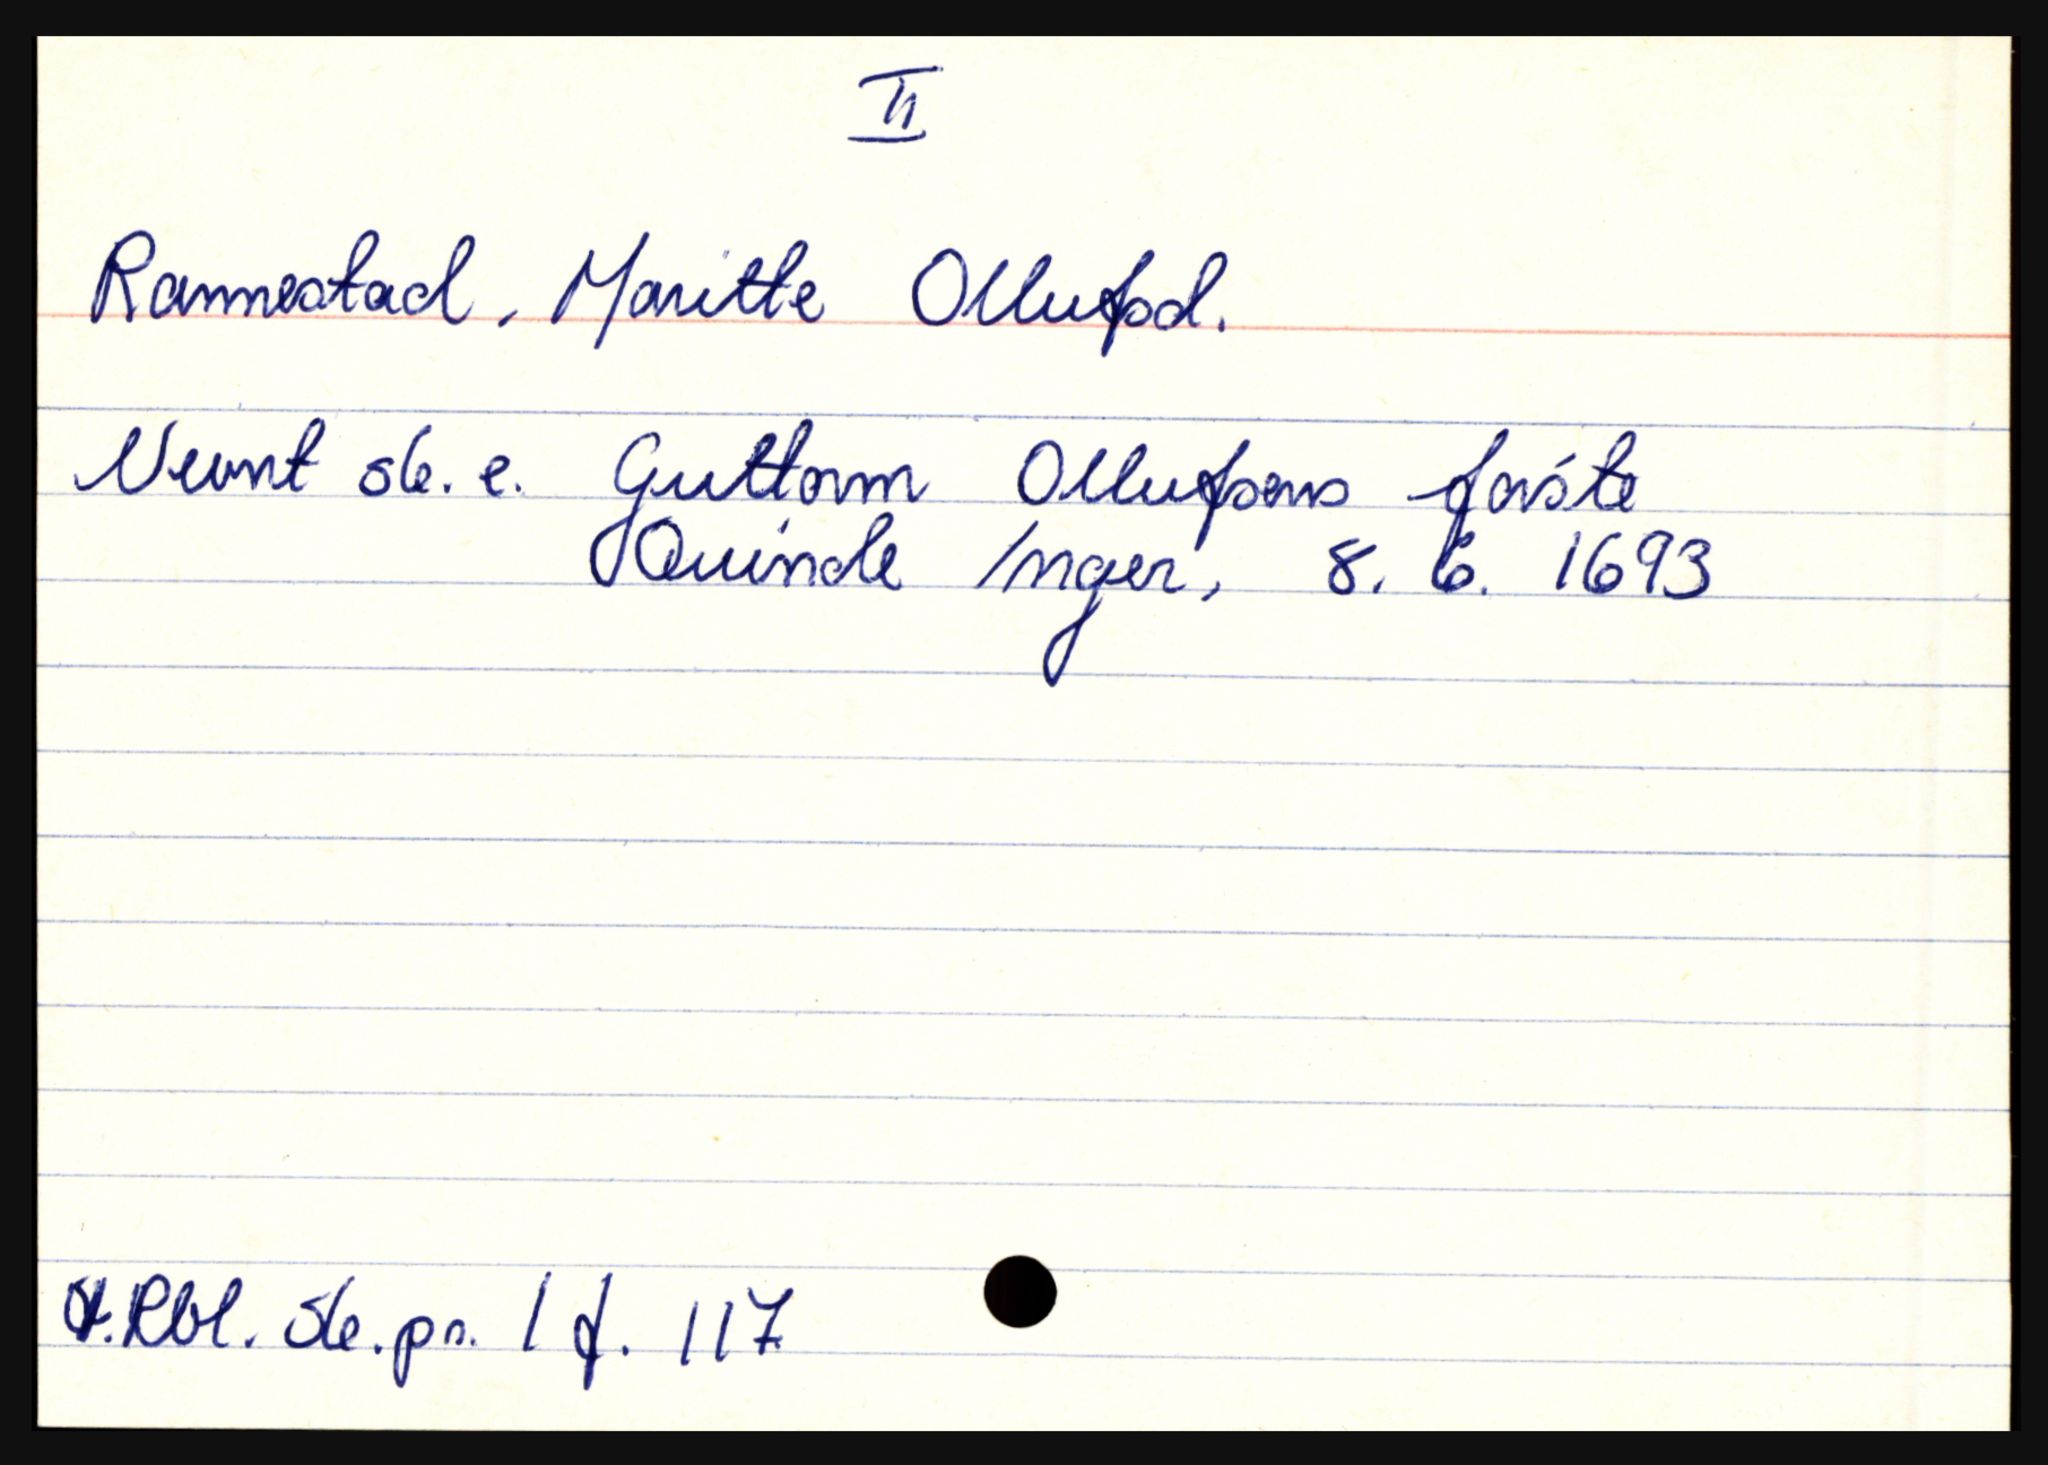 II
Rannestad, Maritte Ollufsd.
Nevnt sk. e. Guttorm Ollufsensførste
Quinde Inger, 8. 6. 1693
Rbl. sk. pr. 1 f. 117